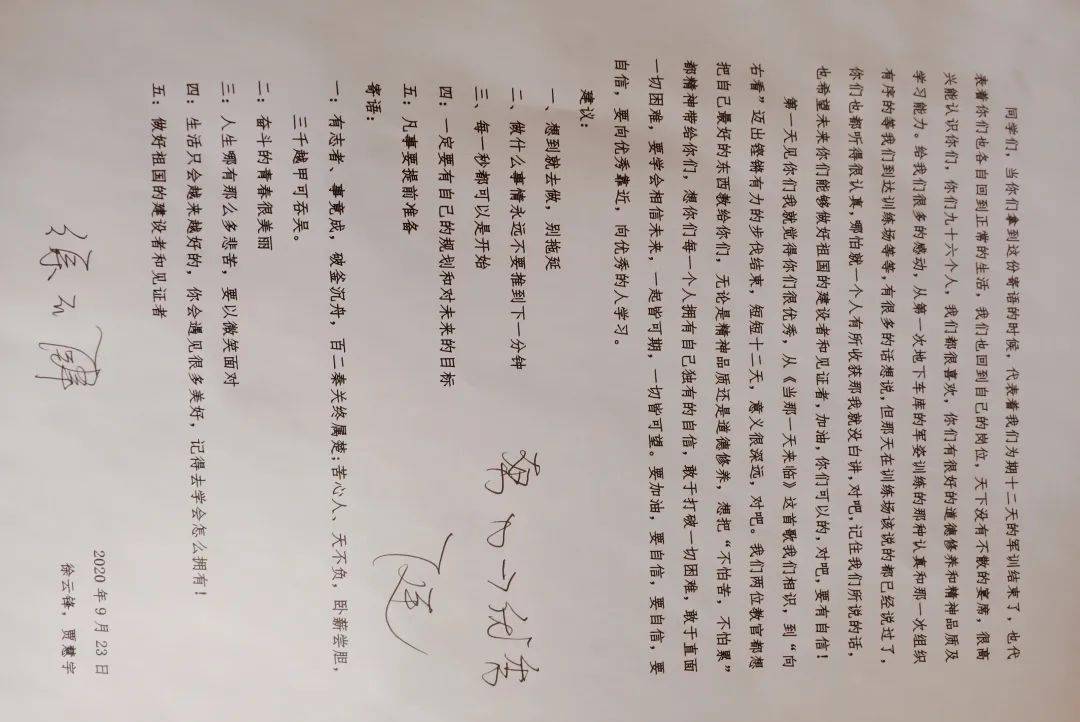 同学们，当你们拿到这份寄语的时候，代表着我们为期十二天的军训结束了，也代
表着你们也各自回到正常的生活，我们也回到自己的岗位，天下没有不散的宴席，很高
兴能认识你们，你们九十六个人，我们都很喜欢，你们有很好的道德修养和精神品质及
学习能力。给我们很多的感动，从第一次地下车库的军姿训练的那种认真和那一次组织
有序的等我们到达训练场等等，有很多的话想说，但那天在训练场该说的都已经说过了，
你们也都听得很认真，哪怕就一个人有所收获那我就没白讲，对吧，记住我们所说的话，
也希望未来你们能够做好祖国的建设者和见证者，加油，你们可以的，对吧，要有自信！
第一天见你们我就觉得你们很优秀，从《当那一天来临》这首歌我们相识，到“向
右看”迈出铿锵有力的步伐结束，短短十二天，意义很深远，对吧。我们两位教官都想
把自己最好的东西教给你们，无论是精神品质还是道德修养，想把“不怕苦，不怕累”
都精神带给你们，想你们每一个人拥有自己独有的自信，敢于打破一切困难，敢于直面
一切困难，要学会相信未来，一起皆可期，一切皆可望。要加油，要自信，要自信，要
自信，要向优秀靠近，向优秀的人学习。
建议：
一、想到就去做，别拖延
二、做什么事情永远不要推到下一分钟
三、每一秒都可以是开始
四：一定要有自己的规划和对未来的目标
五：凡事要提前准备
寄语：
一：有志者、事竟成，破釜沉舟，百二秦关终属楚；苦心人、天不负，卧薪尝胆，
三千越甲可吞吴。
二：奋斗的青春很美丽
三：人生哪有那么多悲苦，要以微笑面对
四：生活只会越来越好的，你会遇见很多美好，记得去学会怎么拥有！
五：做好祖国的建设者和见证者
2020 年 9 月 23 日
徐云锋，贾慧宇